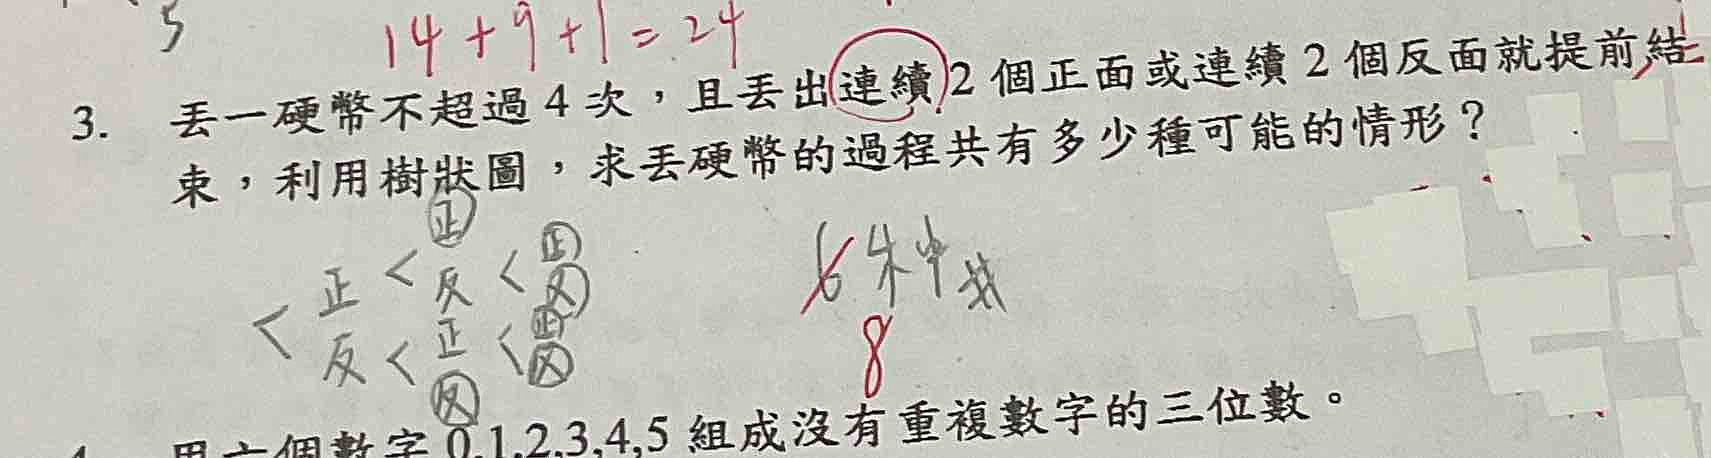 5
14+9+1=24
3. 丟一硬幣不超過 4 次，且丟出連續 2 個正面或連續 2 個反面就提前結
束，利用樹狀圖，求丟硬幣的過程共有多少種可能的情形？
正
正 < 反 < 正
反
< 反 < 正 < 正
反
反
6種
8
用六個數字 0,1,2,3,4,5 組成沒有重複數字的三位數。